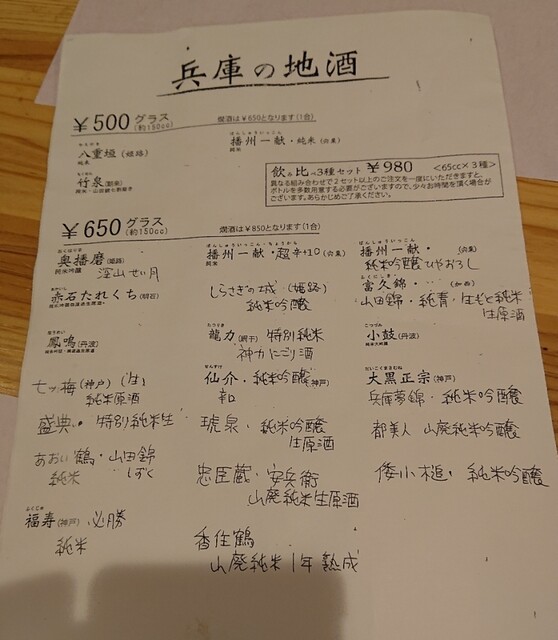 兵庫の地酒
￥500 グラス (約150cc) 燗酒は￥650となります(1合)
八重垣 (姫路) 純米
播州一献・純米 (宍粟) 純米
竹泉 (朝来)
飲み比べ3種セット ￥980 <65cc×3種>
異なる組み合わせで2セット以上のご注文を一度にいただきますと、
ボトルを多数用意する必要がございますので、少々お時間を頂く場合が
ございます。あらかじめご了承ください。
￥650 グラス (約150cc) 燗酒は￥850となります(1合)
奥播磨 (姫路) 純米吟醸 深山せい月
播州一献・超辛+10 (宍粟) 純米
播州一献・ (宍粟) 純米吟醸ひやおろし
赤石たれくち (明石)
しらさぎの城 (姫路) 純米吟醸
富久錦・ (加西) 山田錦・純青・生もと純米 生原酒
鳳鳴 (丹波)
龍力 (網干) 特別純米 神力にごり酒
小鼓 (丹波) 純米大吟醸
七ッ梅 (神戸) (生) 純米原酒
仙介・純米吟醸 (神戸)
大黒正宗 (神戸) 兵庫夢錦・純米吟醸
盛典・特別純米生
琥泉・純米吟醸 生原酒
都美人 山廃純米吟醸
あおい鶴・山田錦 純米 しずく
忠臣蔵・安兵衛 山廃純米生原酒
倭小槌・純米吟醸
福寿 (神戸) 必勝 純米
香住鶴 山廃純米1年熟成